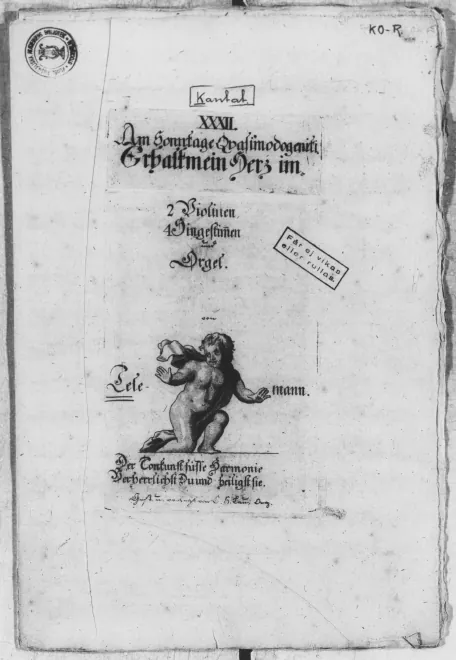 KO-R.
Kantat
XXXII.
Am Sonntage Quasimodogeniti
Erhalt mein Herz im
2 Violinen
4 Singestimen
und
Orgel.
Får ej vikas
eller rullas.
von
Tele mann.
Der Tonkunst süsse Harmonie
Verherrlichst Du und heiligst sie.